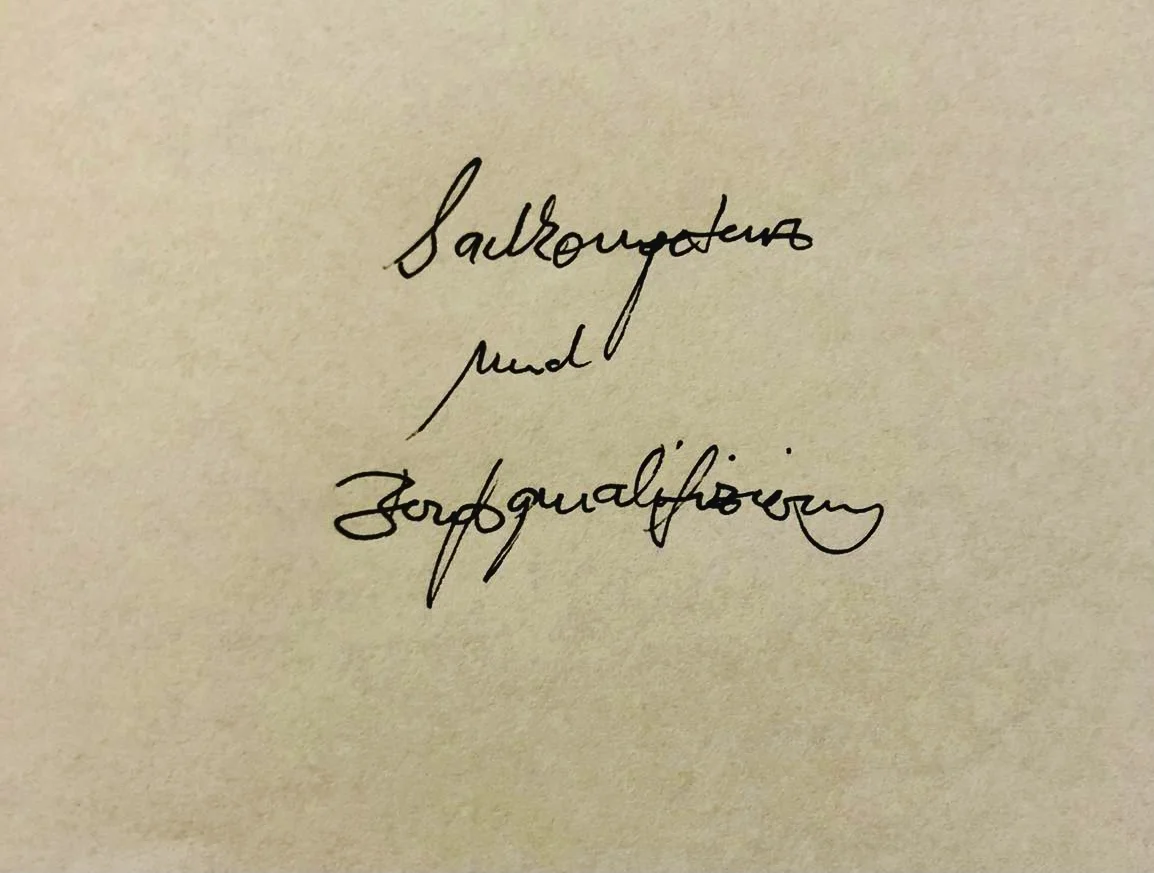 Sachkompetenz
und
Berufsqualifizierung